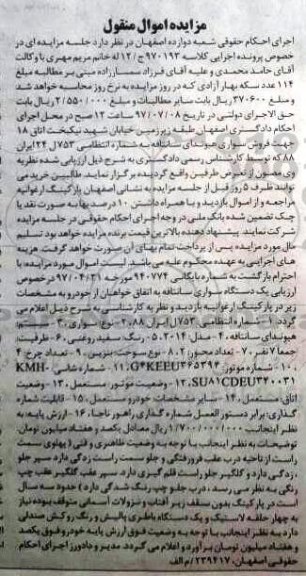 مزایده اموال منقول
اجرای احکام حقوقی شعبه دوازده اصفهان در نظر دارد جلسه مزایده ای در
خصوص پرونده اجرایی کلاسه ۹۷۰۱۹۳ ج/۱۲ له خانم مریم مهری با وکالت
آقای حامد محمدی و علیه آقای فرزاد سمسارزاده مبنی بر مطالبه مبلغ
۱۱۴ عدد سکه بهار آزادی که در روز مزایده به نرخ روز محاسبه خواهد شد
و مبلغ ۳۷۰۶۰۰ ریال بابت سایر مطالبات و مبلغ ۲/۵۵۰/۰۰۰ ریال بابت
حق الاجرای دولتی در تاریخ ۹۷/۰۷/۰۸ ساعت ۱۲ صبح در محل اجرای
احکام دادگستری اصفهان طبقه زیرزمین خیابان شهید نیکبخت اتاق ۱۸
جهت فروش سواری هیوندای سانتافه به شماره انتظامی ۷۵۳ل۲۴ ایران
۸۸ که توسط کارشناس رسمی دادگستری به شرح ذیل ارزیابی شده نظریه
وی مصون از تعرض طرفین واقع گردیده برگزار نماید. طالبین خرید می
توانند ظرف ۵ روز قبل از جلسه مزایده به نشانی اصفهان پارکینگ ارغوانیه
مراجعه و از اموال بازدید و با همراه داشتن ۱۰ درصد بها به صورت نقد یا
چک تضمین شده بانک ملی در وجه اجرای احکام حقوقی در جلسه مزایده
شرکت نمایند. پیشنهاد دهنده بالاترین قیمت برنده مزایده خواهد بود تسلیم
مال مورد مزایده پس از پرداخت تمام بهای آن صورت خواهد گرفت. هزینه
های اجرایی به عهده محکوم علیه می باشد. لیست اموال مورد مزایده: با
احترام بازگشت به شماره بایگانی ۹۴۰۷۷۴ مورخه ۹۷/۰۴/۳۱ در خصوص
ارزیابی یک دستگاه سواری سانتافه به اتفاق خواهان از خودرو به مشخصات
زیر در پارکینگ ارغوانیه بازدید و نظریه کارشناسی به شرح ذیل اعلام می
گردد. ۱- شماره انتظامی: ۷۵۳ل۲۴ ایران ۸۸، ۲- نوع: سواری، ۳- سیستم:
هیوندای سانتافه، ۴- مدل: ۲۰۱۴، ۵- رنگ: سفید روغنی، ۶- ظرفیت:
جمعا ۷ نفر، ۷- تعداد محور: ۲، ۸- نوع سوخت: بنزین، ۹- تعداد چرخ: ۴
۱۰- شماره موتور: G۴KEEU۳۶۵۳۹۴، ۱۱- شماره شاسی: KMH
SU۸۱CDEU۳۴۰۰۳۱، ۱۲- وضعیت موتور: مستعمل، ۱۳- وضعیت
اتاق: مستعمل، ۱۴- سایر مشخصات خودرو مستعمل، ۱۵- قابلیت شماره
گذاری: برابر دستور العمل شماره گذاری راهور ناجا، ۱۶- ارزش پایه به
نظر اینجانب ۱/۷۰۰/۰۰۰/۰۰۰ ریال معادل یکصد و هفتاد میلیون تومان
توضیحات: به نظر اینجانب با توجه به وضعیت ظاهری و فنی (پهلوی سمت
راست از ناحیه درب عقب فرورفتگی و جلو سمت راست زدگی دارد سپر جلو
زدگی دارد و گلگیر جلو راست قلم گیری دارد. سپر عقب گلگیر عقب چپ
رنگی به نظر می رسد، درب جلو چپ رنگ شدگی دارد) حدود سه سال
است در پارکینگ بدون سقف زیر آفتاب و نزولات آسمانی متوقف بوده نیاز
به چهار حلقه لاستیک و یک دستگاه باطری پالیش و رنگ روکش صندلی
دارد به نظر اینجانب با توجه به وضعیت فوق ارزش پایه خودرو فوق یکصد
و هفتاد میلیون تومان برآورد و اعلام می گردد. مدیر و دادورز اجرای احکام
حقوقی اصفهان. ۲۳۹۴۱۷/ م الف